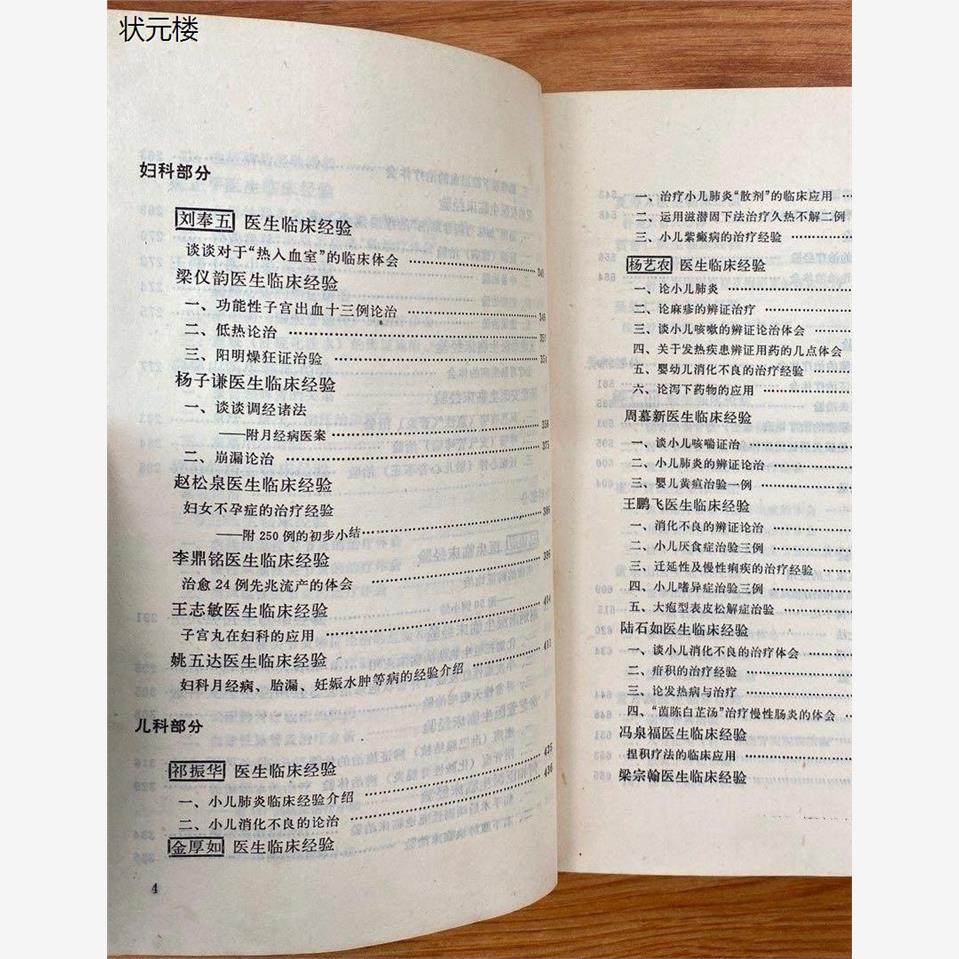 状元楼
妇科部分
刘奉五 医生临床经验
谈谈对于“热入血室”的临床体会
梁仪韵医生临床经验
一、功能性子宫出血十三例论治
二、低热论治 351
三、阳明燥狂证治验 354
杨子谦医生临床经验
一、谈谈调经诸法
——附月经病医案 358
二、崩漏论治 375
赵松泉医生临床经验
妇女不孕症的治疗经验
——附250例的初步小结 386
李鼎铭医生临床经验
治愈24例先兆流产的体会 396
王志敏医生临床经验
子宫丸在妇科的应用 414
姚五达医生临床经验
妇科月经病、胎漏、妊娠水肿等病的经验介绍
儿科部分
祁振华 医生临床经验
一、小儿肺炎临床经验介绍 435
二、小儿消化不良的论治 436
金厚如 医生临床经验
4
一、治疗小儿肺炎“散剂”的临床应用
二、运用滋潜固下法治疗久热不解二例
三、小儿紫癜病的治疗经验
杨艺农 医生临床经验
一、论小儿肺炎
二、论麻疹的辨证治疗
三、谈小儿咳嗽的辨证论治体会
四、关于发热疾患辨证用药的几点体会
五、婴幼儿消化不良的治疗经验
六、论泻下药物的应用
周慕新医生临床经验
一、谈小儿咳喘证治
二、小儿肺炎的辨证论治
三、婴儿黄疸治验一例
王鹏飞医生临床经验
一、消化不良的辨证论治
二、小儿厌食症治验三例
三、迁延性及慢性痢疾的治疗经验
四、小儿嗜异症治验三例
五、大疱型表皮松解症治验
陆石如医生临床经验
一、谈小儿消化不良的治疗体会
二、疳积的治疗经验
三、论发热病与治疗
四、“茵陈白芷汤”治疗慢性肠炎的体会
冯泉福医生临床经验
捏积疗法的临床应用
梁宗翰医生临床经验